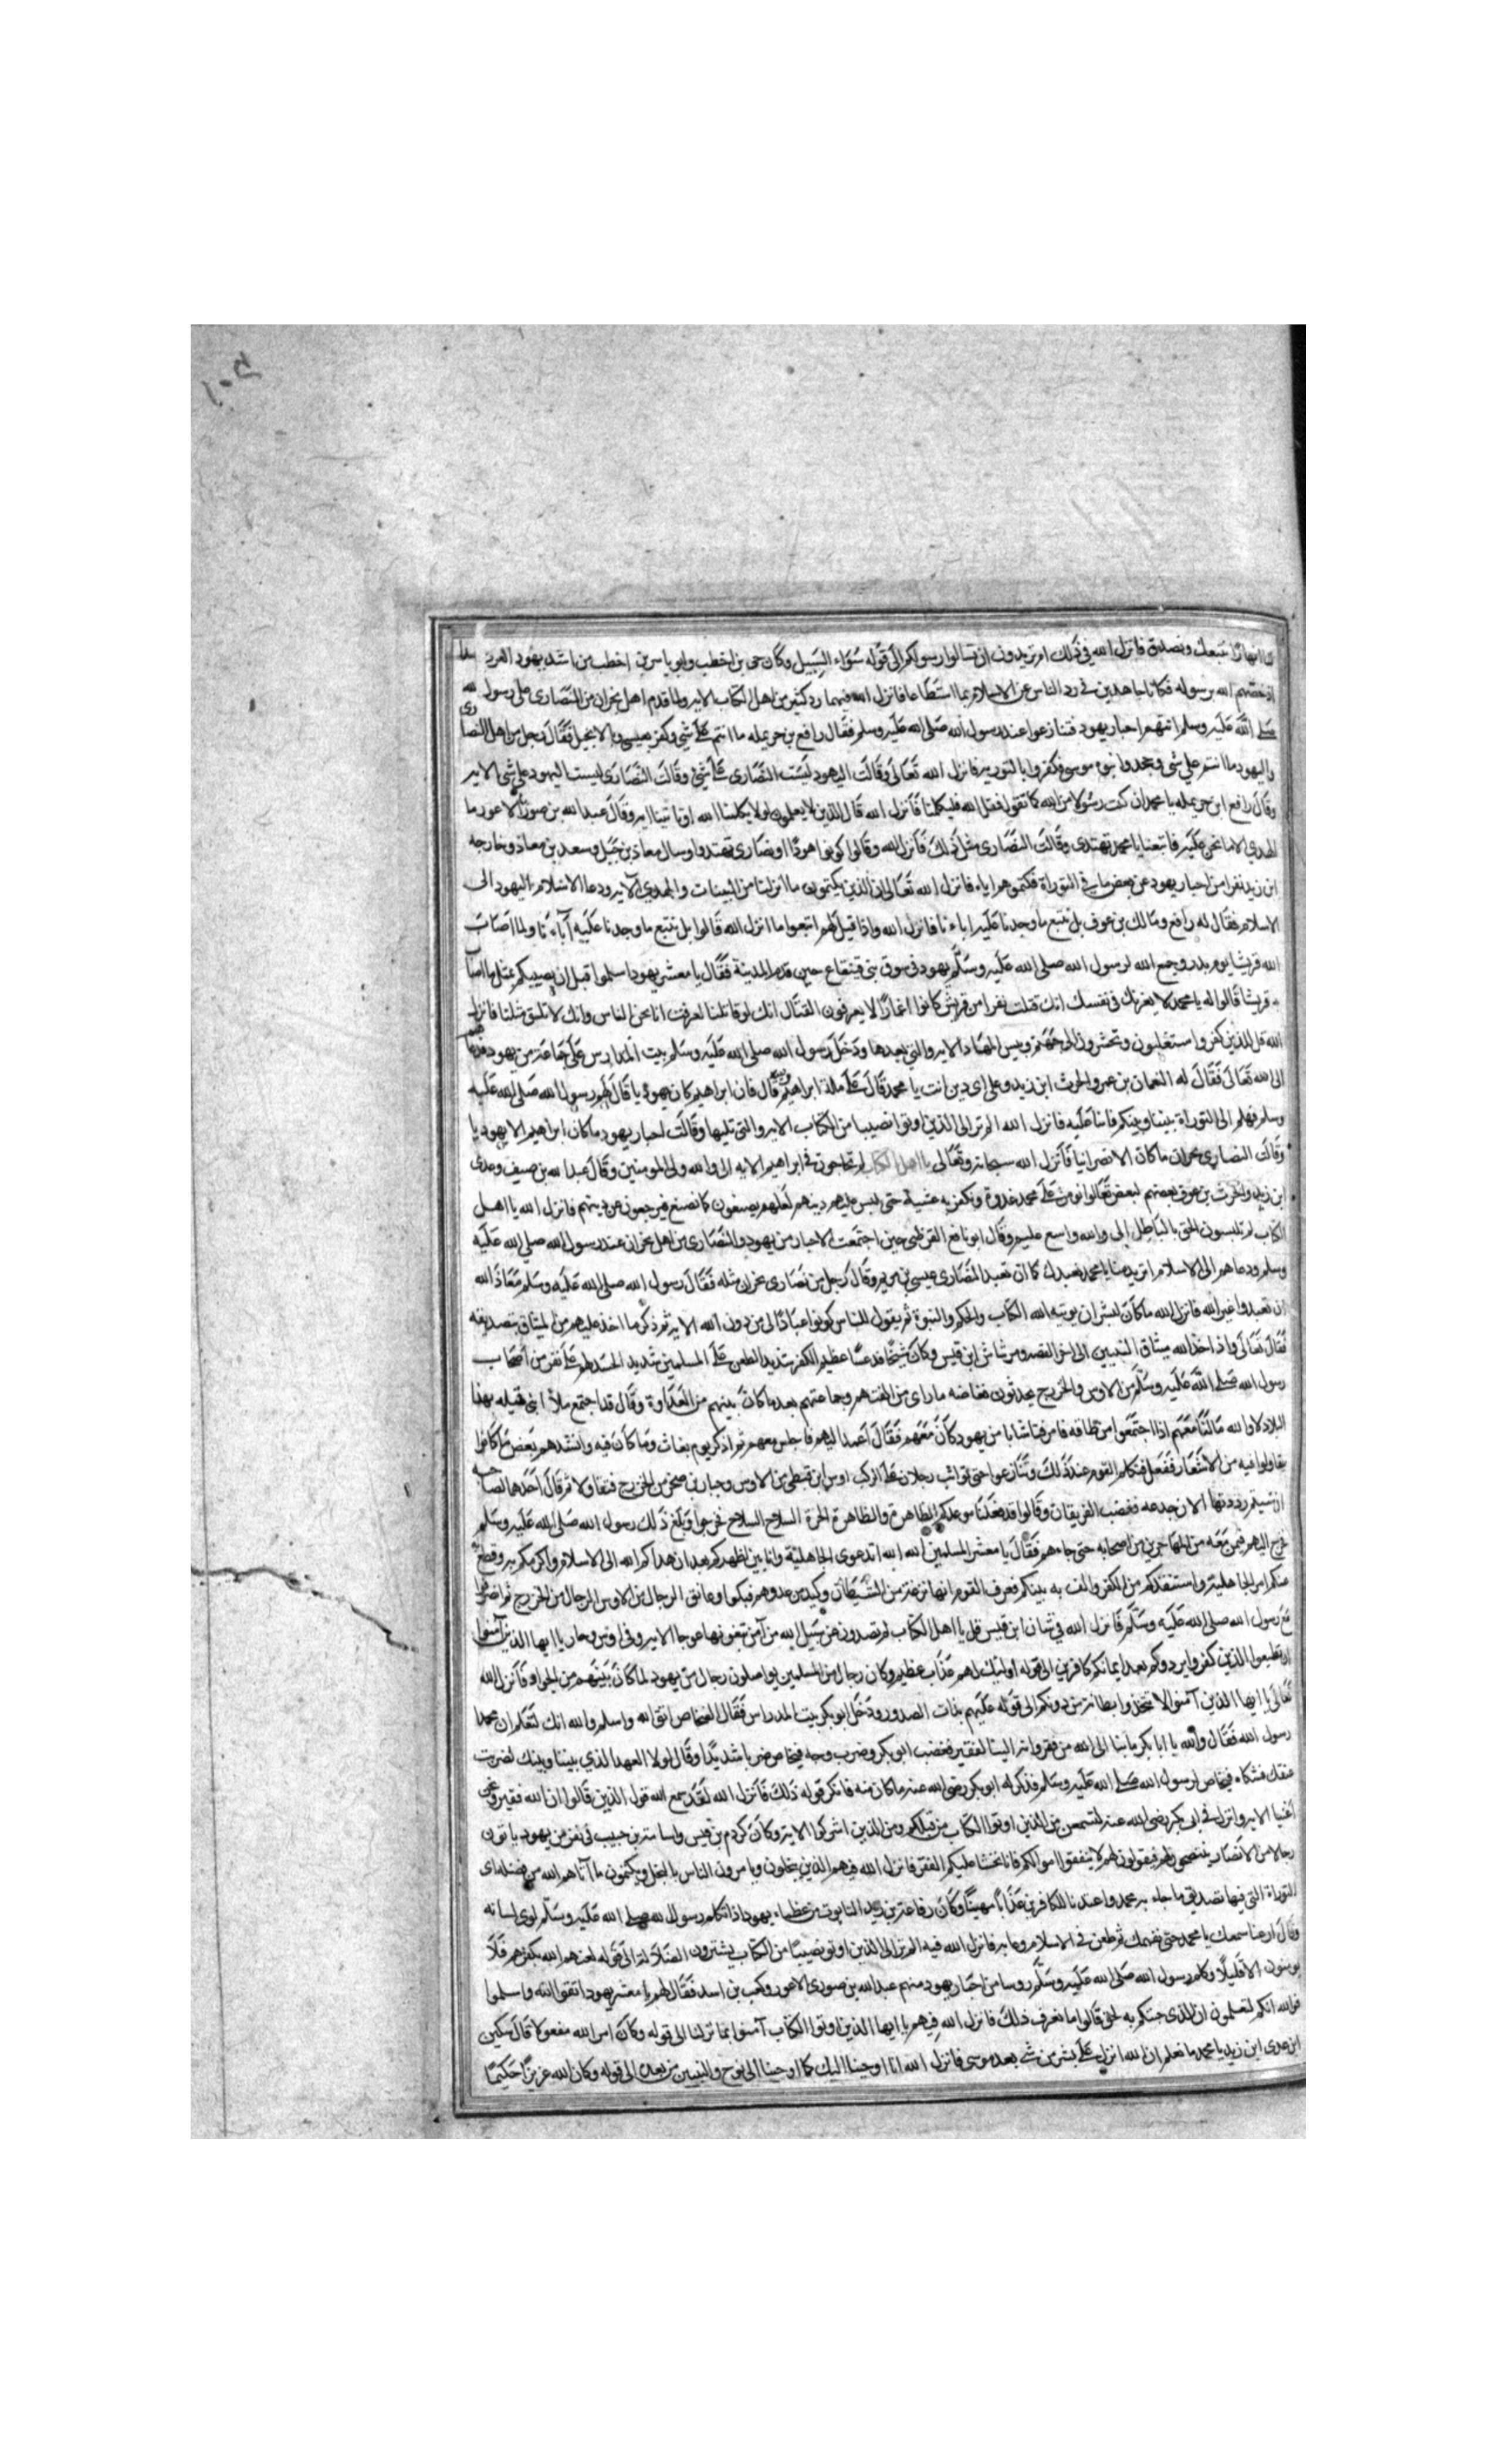 لنا انهارا نتبعك ونصدقك فانزل الله في ذلك ام تريدون ان تسالوا رسولكم الى قوله سواء السبيل وكان حي بن اخطب وابو ياسر بن اخطب من اشد يهود العرب حسدا
اذ خصهم الله برسوله فكانا جاهدين في رد الناس عن الاسلام بما استطاعا فانزل الله فيهما ود كثير من اهل الكتاب الاية ولما قدم اهل نجران من النصارى على رسول الله
صلى الله عليه وسلم اتتهم احبار يهود فتنازعوا عند رسول الله صلى الله عليه وسلم فقال رافع بن حريمله ما انتم على شي وكفر بعيسى وبالانجيل فقال رجل من اهل النصارى
واليهود ما انتم على شي وجحد نبوة موسى وكفروا بالتورية فانزل الله تعالى وقالت اليهود ليست النصارى على شي وقالت النصارى ليست اليهود على شي الاية
وقال رافع ابن حريمله يا محمد ان كنت رسولا من الله كما تقول فقل لله فليكلمنا فانزل الله قال الذين لا يعلمون لولا يكلمنا الله او تاتينا اية وقال عبد الله بن صوريا الاعور ما
الهدي الا ما نحن عليه فاتبعنا يا محمد تهتدى وقالت النصارى مثل ذلك فانزل الله وقالوا كونوا هودا او نصارى تهتدوا وسال معاذ بن جبل وسعد بن معاذ وخارجه
ابن زيد نفرا من احبار يهود عن بعض ما في التوراة فكتموهم اياه فانزل الله تعالى ان الذين يكتمون ما انزلنا من البينات والهدى الاية ودعا الاسلام اليهود الى
الاسلام فقال له رافع ومالك بن عوف بل نتبع ما وجدنا عليه اباءنا فانزل الله واذا قيل لهم اتبعوا ما انزل الله قالوا بل نتبع ما وجدنا عليه آباءنا ولما اصاب
الله قريشا يوم بدر وجمع الله لرسول الله صلى الله عليه وسلم يهود في سوق بنى قينقاع حين قدم المدينة فقال يا معشر يهود اسلموا قبل ان يصيبكم بمثل ما اصاب
قريشا قالوا له يا محمد لا يغرنك في نفسك انك قتلت نفرا من قريش كانوا اغمارا لا يعرفون القتال انك لو قاتلنا لعرفت انا نحن الناس وانك لا تلق مثلنا فانزل
الله قل للذين كفروا ستغلبون وتحشرون الى جهنم وبيس المهاد الاية والتي بعدها ودخل رسول الله صلى الله عليه وسلم بيت المدارس على جماعة من يهود فدعاهم
الى الله تعالى فقال له النعمان بن عمرو والحرث ابن زيد وعلى اي دين انت يا محمد قال على ملة ابراهيم قال فان ابراهيم كان يهوديا قال لهم رسول الله صلى الله عليه
وسلم فهلم الى التوراة بيننا وبينكم فابنا عليه فانزل الله الم تر الى الذين اوتوا نصيبا من الكتاب الاية والتي تليها وقالت احبار يهود ما كان ابراهيم الا يهوديا
وقالت النصارى نجران ما كان الا نصرانيا فانزل الله سبحانه وتعالى يا اهل الكتاب لم تحاجون في ابراهيم الاية الى والله ولى المومنين وقال عبد الله بن صيف وعدى
ابن زيد والحرث بن عوف بعضهم لبعض تعالوا نومن على محمد غدوة ونكفر به عشية حتى نلبس عليهم دينهم لعلهم يصنعون كما نصنع فيرجعون عن دينهم فانزل الله يا اهل
الكتاب لم تلبسون الحق بالباطل الى والله واسع عليم وقال ابو نافع القرظي حين اجتمعت الاحبار من يهود والنصارى من اهل نجران عند رسول الله صلى الله عليه
وسلم ودعاهم الى الاسلام اتريد منا يا محمد نعبدك كما ان تعبد النصارى عيسى بن مريم وقال رجل من نصارى نجران مثله فقال رسول الله صلى الله عليه وسلم معاذ الله
ان نعبدوا غير الله فانزل الله ما كان لبشر ان يوتيه الله الكتاب والحكم والنبوة ثم يقول للناس كونوا عبادا لى من دون الله الاية ثم ذكر ما اخذ عليهم من الميثاق بتصديقه
فقال تعالى واذ اخذ الله ميثاق النبيين الى اخر القصه ومر شاش ابن قيس وكان شيخا قد عسا عظيم الكفر شديد الطعن على المسلمين شديد الحسد لهم على نفر من اصحاب
رسول الله صلى الله عليه وسلم من الاوس والخزرج يحدثون فغاضه ما راى من الفتهم وجماعتهم بعد ما كان بينهم من العداوة وقال قد اجتمع ملأ بنى قيله بهذا
البلاد لا والله مالنا معهم اذا اجتمعوا من طاقه فامر فتا شابا من يهود كان معهم فقال اعمد اليهم فاجلس معهم ثم اذكر يوم بغاث وما كان فيه وانشدهم بعض ما كانوا
يقاولوا فيه من الاشعار ففعل فتكلم القوم عند ذلك وتنازعوا حتى تواثب رجلان على الركب اوس ابن قيطى من الاوس وجبار بن صخر من الخزرج فتقاولا ثم قال احدهما لصاحبه
ان شيتم رددتها الان جدعه فغضب الفريقان وقالوا قد فعلنا موعدكم الظاهرة والظاهرة الحرة السلاح السلاح فخرجوا وبلغ ذلك رسول الله صلى الله عليه وسلم
خرج اليهم فيمن معه من المهاجرين من اصحابه حتى جاءهم فقال يا معشر المسلمين الله الله اتدعوى الجاهلية وانا بين اظهركم بعد ان هداكم الله الى الاسلام واكرمكم به وقطع
عنكم امر الجاهلية واستنقذكم من الكفر والف به بينكم فعرف القوم انها نزغة من الشيطان وكيد من عدوهم فبكوا وعانق الرجال من الاوس الرجال من الخزرج ثم انصرفوا
مع رسول الله صلى الله عليه وسلم فانزل الله في شان ابن قيس قل يا اهل الكتاب لم تصدون عن سبيل الله من آمن تبغونها عوجا الاية وفي اوس وجبار يا ايها الذين آمنوا
ان تطيعوا الذين كفروا يردوكم بعد ايمانكم كافرين الى قوله اولئك لهم عذاب عظيم وكان رجال من المسلمين يواصلون رجال من يهود لما كان بينهم من الجوار فانزل الله
تعالى يا ايها الذين آمنوا لا تتخذوا بطانة من دونكم الى قوله عليهم بذات الصدور ودخل ابو بكر بيت المدراس فقال لفنحاص اتق الله واسلم والله انك لتعلم ان محمدا
رسول الله فقال والله يا ابا بكر ما بنا الى الله من فقر وانه الينا لفقير فغضب ابو بكر وضرب وجه فنحاص ضربا شديدا وقال لولا العهد الذي بيننا وبينك لضربت
عنقك فشكاه فنحاص لرسول الله صلى الله عليه وسلم فذكر له ابو بكر رضى الله عنه ما كان منه فانكر قوله ذلك فانزل الله لقد سمع الله قول الذين قالوا ان الله فقير ونحن
اغنيا الاية وانزل في ابى بكر رضى الله عنه لتسمعن من الذين اوتوا الكتاب من قبلكم ومن الذين اشركوا الاية وكان كردم بن قيس واسامة بن حبيب في نفر من يهود ياتون
رجالا من الانصار ينتصحون لهم فيقولون لهم لا ينفقوا اموالكم فانا نخشا عليكم الفقر فانزل الله فيهم الذين يبخلون ويامرون الناس بالبخل ويكتمون ما آتاهم الله من فضله اى
التوراة التي فيها تصديق ما جاء به محمد واعتدنا للكافرين عذابا مهينا وكان رفاعة بن زيد التابوت من عظماء يهود اذا تكلم رسول الله صلى الله عليه وسلم لوى لسانه
وقال ارعنا سمعك يا محمد حتى نفهمك ثم طعن في الاسلام وعابه فانزل الله فيه الم تر الى الذين اوتو نصيبا من الكتاب يشترون الضلالة الى قوله لعنهم الله بكفرهم فلا
يومنون الا قليلا وكلم رسول الله صلى الله عليه وسلم روسا من احبار يهود منهم عبد الله بن صورى الاعور وكعب بن اسد فقال لهم يا معشر يهود اتقوا الله واسلموا
فوالله انكم لتعلمون ان الذى جئتكم به لحق قالوا ما نعرف ذلك فانزل الله فيهم يا ايها الذين اوتوا الكتاب آمنوا بما نزلنا الى قوله وكان امر الله مفعولا قال سكين
ابن عدى ابن زيد يا محمد ما نعلم ان الله انزل على بشر من شي بعد موسى فانزل الله انا اوحينا اليك كما اوحينا الى نوح والنبيين من بعده الى قوله وكان الله عزيزا حكيما